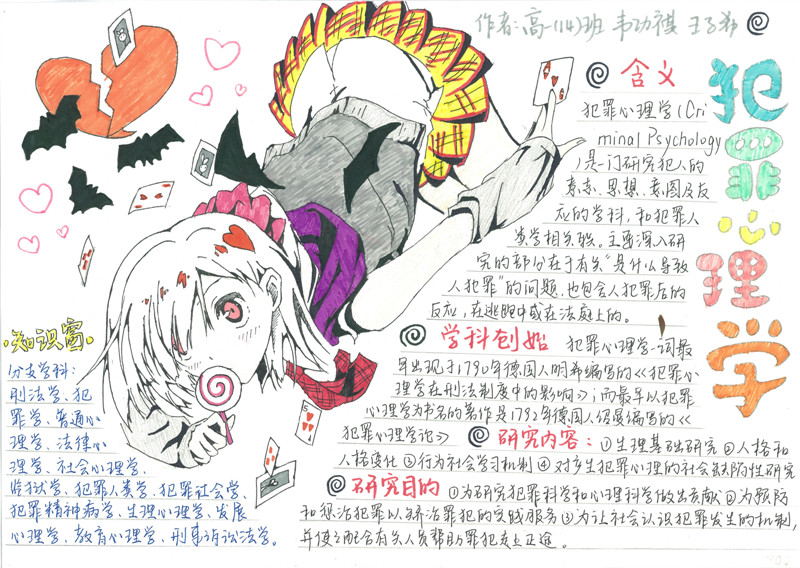 作者:高一(14)班 韦功祺 王子希
犯罪心理学
含义
犯罪心理学(Cri
minal Psychology
)是一门研究犯人的
意志、思想、意图及反
应的学科,和犯罪人
类学相关联。主要深入研
究的部分在于有关"是什么导致
人犯罪"的问题,也包含人犯罪后的
反应,在逃跑中或在法庭上的。
学科创始 犯罪心理学一词最
早出现于1790年德国人明希编写的《犯罪心
理学在刑法制度中的影响》;而最早以犯罪
心理学为书名的著作是1792年德国人绍曼编写的《
犯罪心理学论》 研究内容:①生理基础研究 ②人格和
人格变化 ③行为社会学习机制 ④对产生犯罪心理的社会缺陷性研究
研究目的 ①为研究犯罪科学和心理科学做出贡献 ②为预防
和惩治犯罪以矫治罪犯的实践服务 ③为让社会认识犯罪发生的机制,
并使之配合有关人员帮助罪犯走上正途。
知识窗
分支学科:
刑法学、犯
罪学、普通心
理学、法律心
理学、社会心理学、
监狱学、犯罪人类学、犯罪社会学、
犯罪精神病学、生理心理学、发展
心理学、教育心理学、刑事诉讼法学。